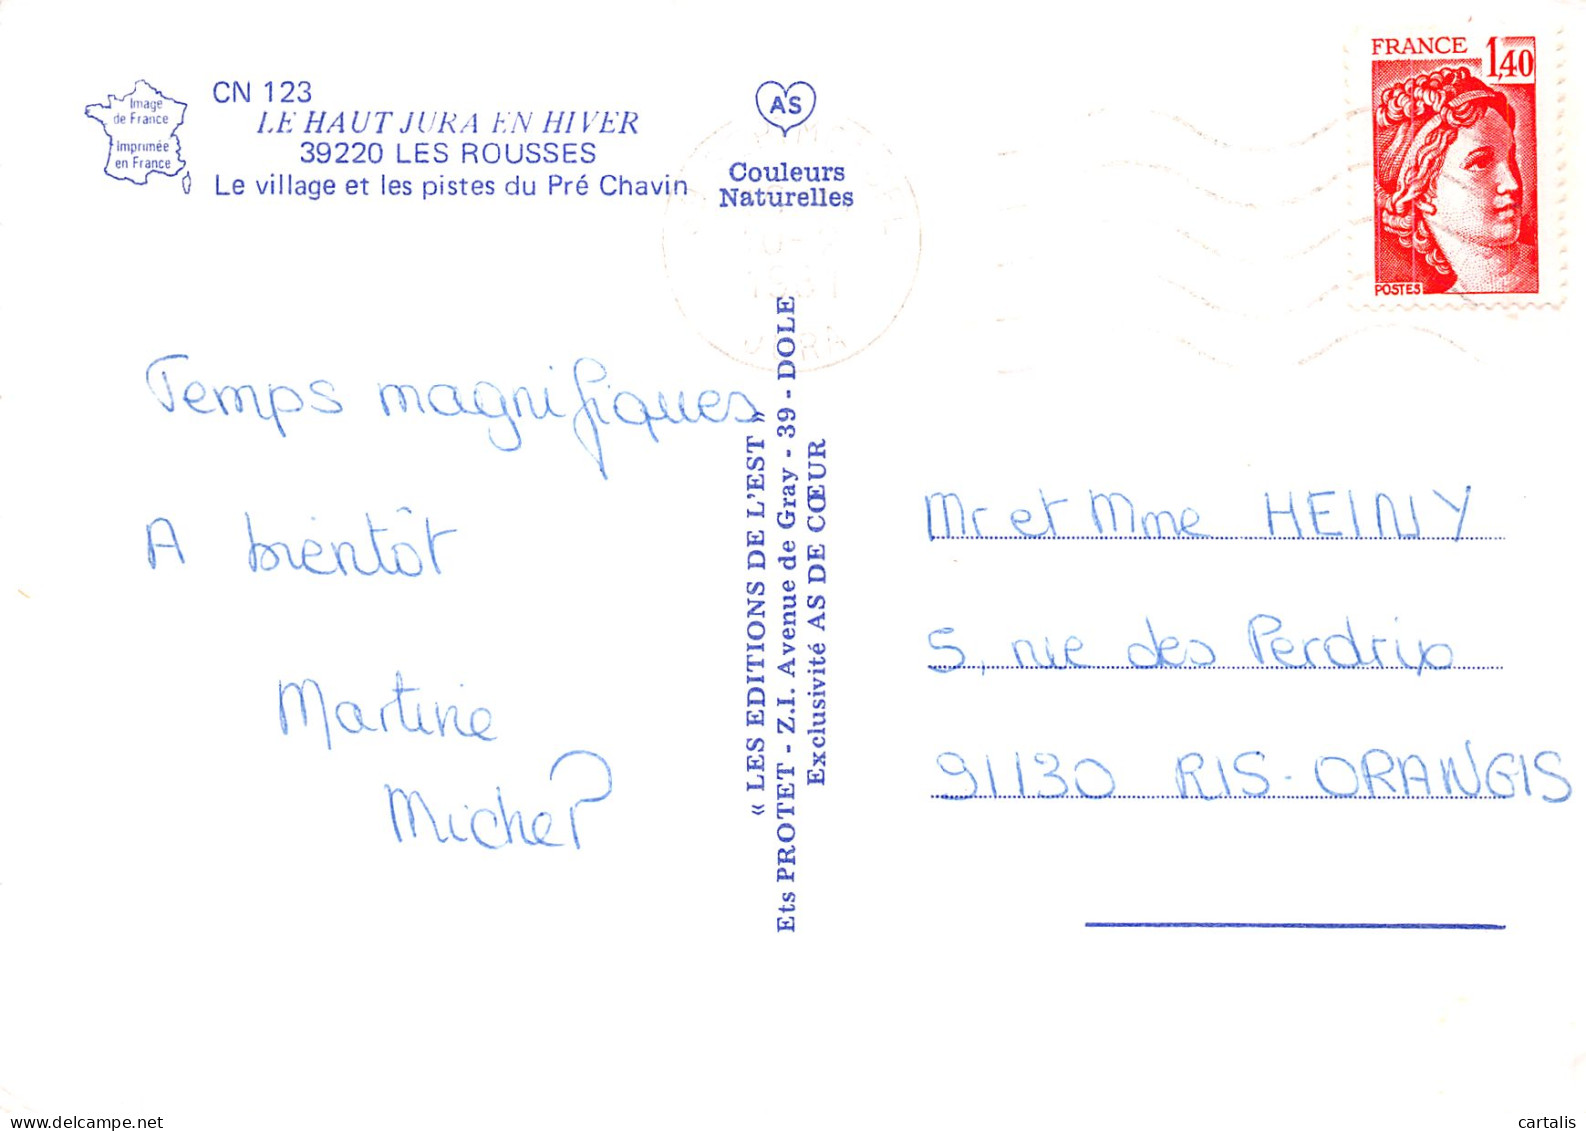 Image
de France
Imprimée
en France
CN 123
LE HAUT JURA EN HIVER
39220 LES ROUSSES
Le village et les pistes du Pré Chavin
AS
Couleurs
Naturelles
FRANCE 1,40
POSTES
JURA
Temps magnifiques
A bientôt
Martine
Michel
« LES EDITIONS DE L'EST »
Ets PROTET - Z.I. Avenue de Gray - 39 - DOLE
Exclusivité AS DE CŒUR
Mr et Mme HEINY
5, rue des Perdrix
91130 RIS-ORANGIS
cartalis